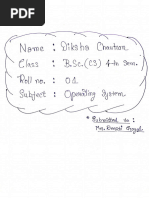 Name : Diksha Chauhan
Class : B.Sc.(CS) 4th Sem.
Roll no. : 01
Subject : Operating System
* Submitted to :